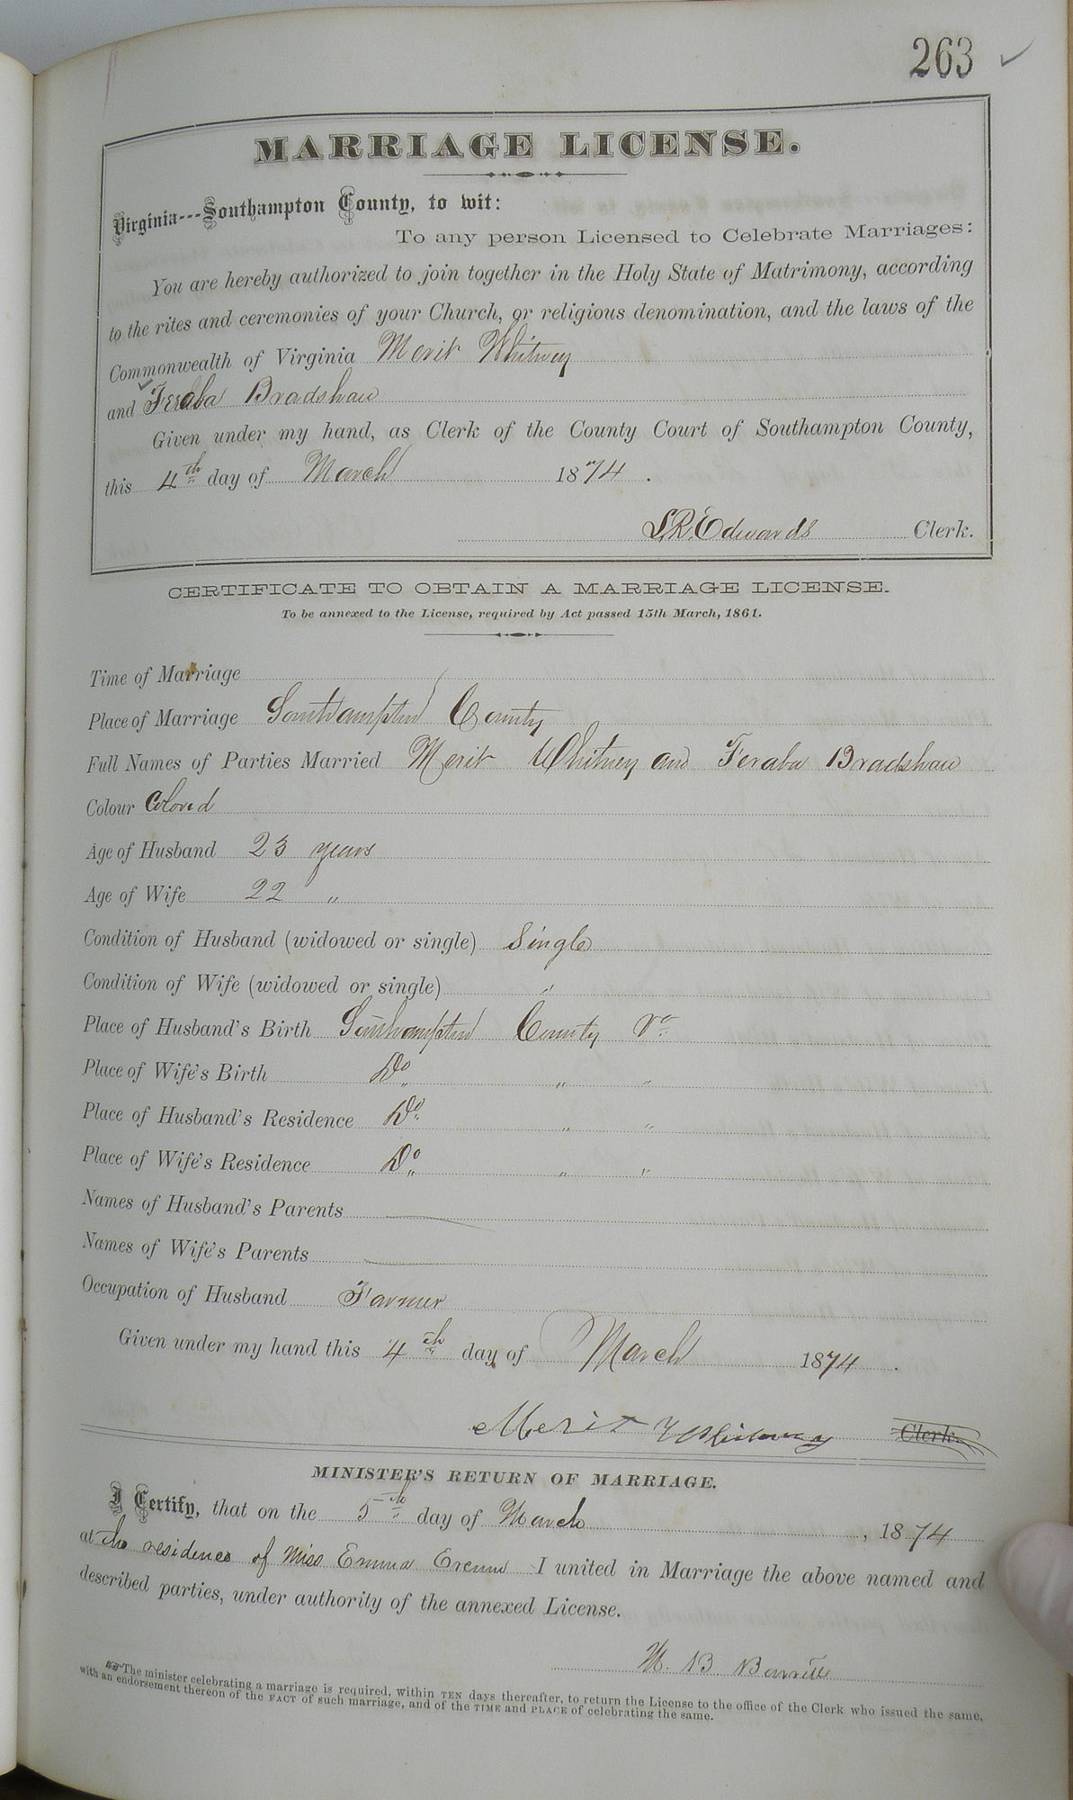 263
MARRIAGE LICENSE.
Virginia---Southampton County, to wit:
To any person Licensed to Celebrate Marriages:
You are hereby authorized to join together in the Holy State of Matrimony, according
to the rites and ceremonies of your Church, or religious denomination, and the laws of the
Commonwealth of Virginia Merit Whitney
and Feraba Bradshaw
Given under my hand, as Clerk of the County Court of Southampton County,
this 4th day of March 1874.
L.R. Edwards Clerk.
CERTIFICATE TO OBTAIN A MARRIAGE LICENSE.
To be annexed to the License, required by Act passed 15th March, 1861.
Time of Marriage
Place of Marriage Southampton County
Full Names of Parties Married Merit Whitney and Feraba Bradshaw
Colour Colored
Age of Husband 23 years
Age of Wife 22 "
Condition of Husband (widowed or single) Single
Condition of Wife (widowed or single) "
Place of Husband's Birth Southampton County Va
Place of Wife's Birth Do " "
Place of Husband's Residence Do " "
Place of Wife's Residence Do " "
Names of Husband's Parents
Names of Wife's Parents
Occupation of Husband Farmer
Given under my hand this 4th day of March 1874.
Merit Whitney Clerk.
MINISTER'S RETURN OF MARRIAGE.
I Certify, that on the 5th day of March, 1874
at the residence of Miss Emma I united in Marriage the above named and
described parties, under authority of the annexed License.
B
The minister celebrating a marriage is required, within TEN days thereafter, to return the License to the office of the Clerk who issued the same,
with an endorsement thereon of the FACT of such marriage, and of the TIME and PLACE of celebrating the same.